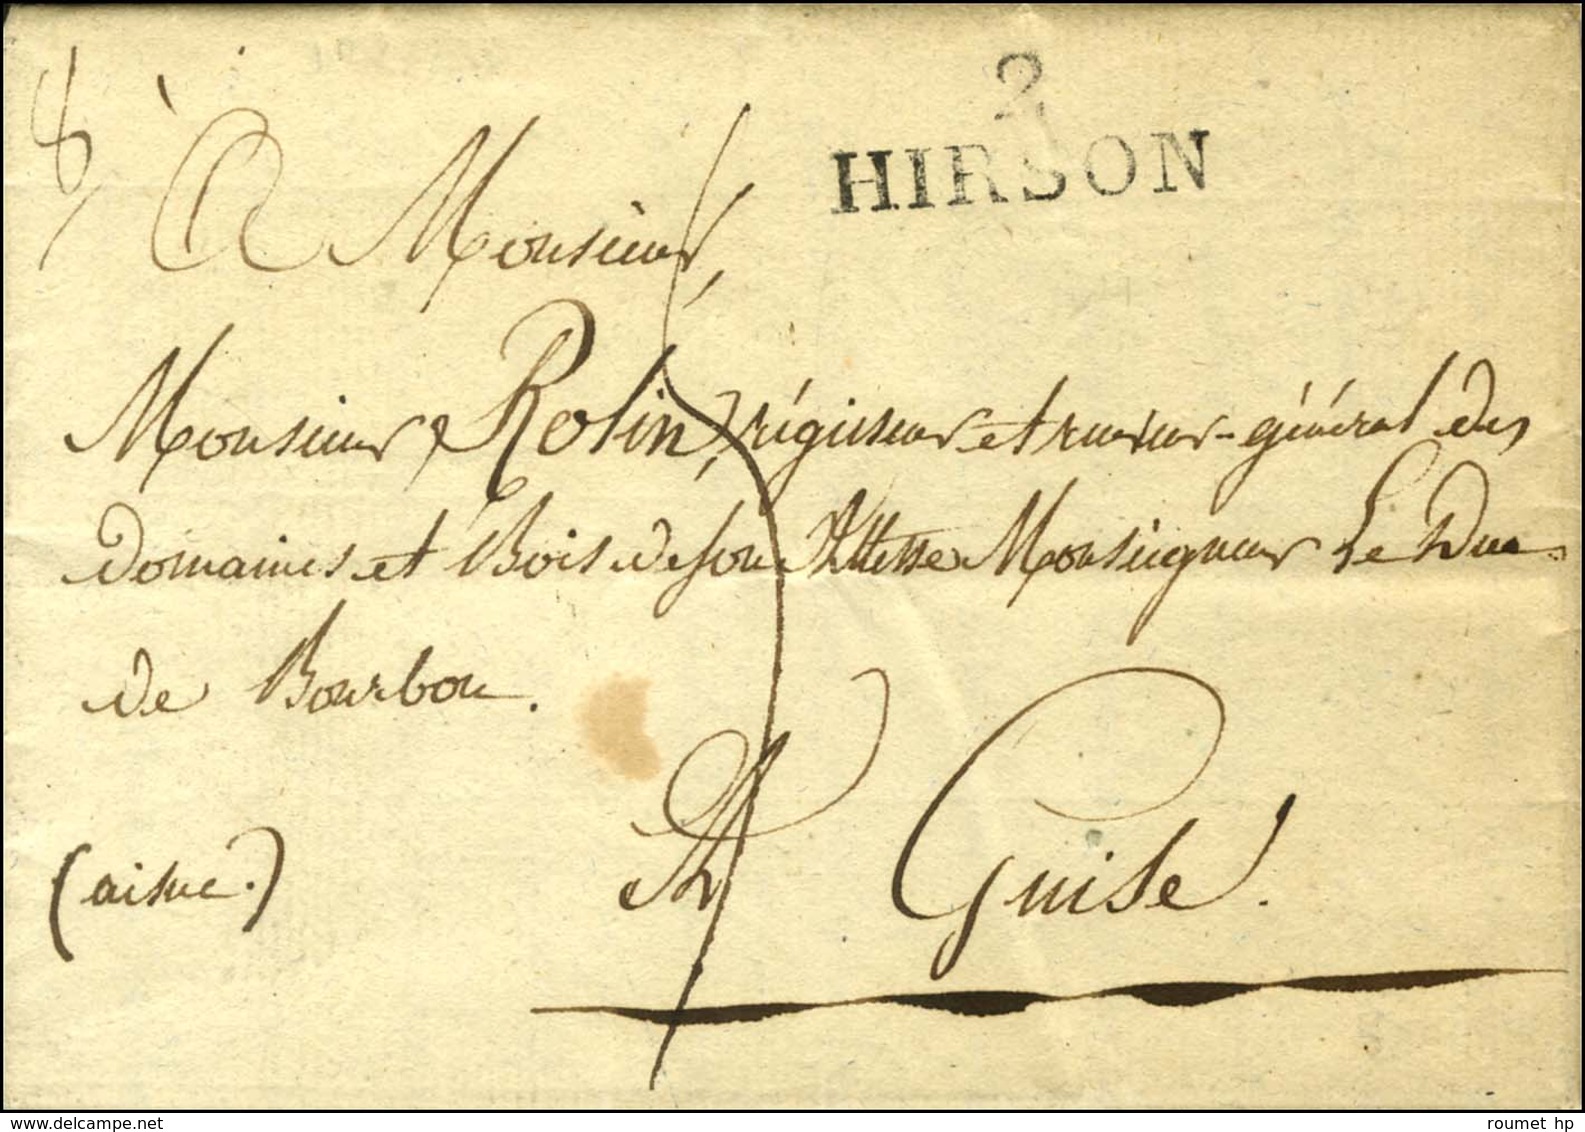 2
HIRSON
A Monsieur,
Monsieur Rolin, régisseur et receveur-général des
domaines et Bois de son Altesse Monseigneur Le Duc
de Bourbon.
A Guise.
(aisne.)
delcampe.net
roumet hp